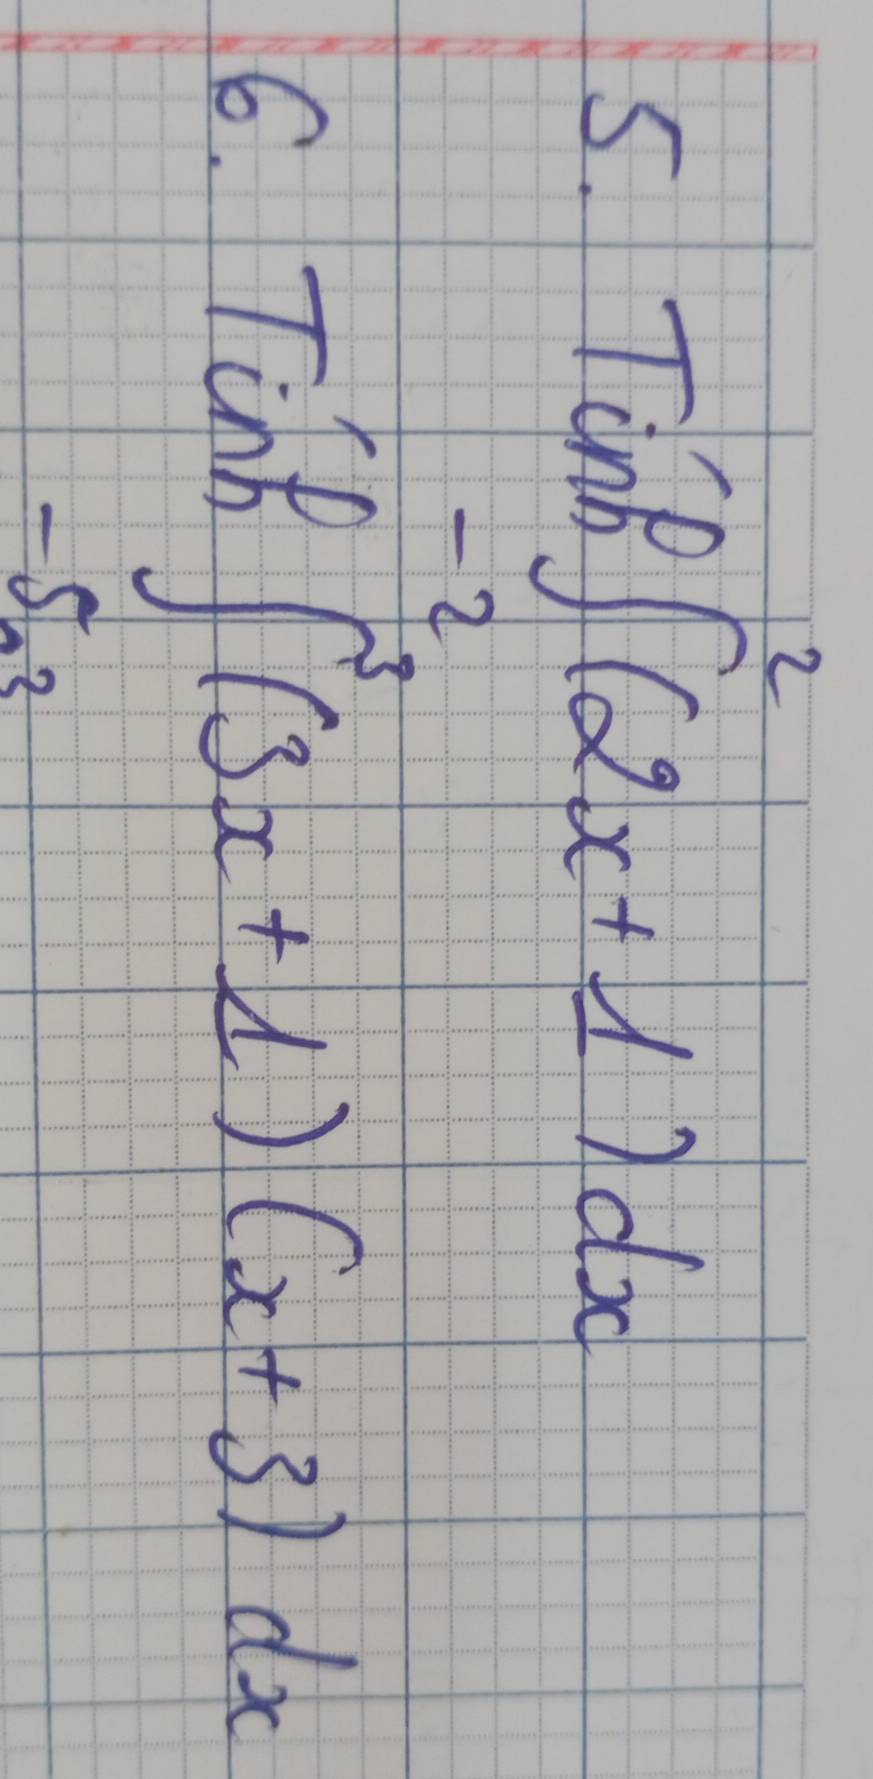 5. Tính ∫ (2x + 1) dx
2
-2
6. Tính ∫ (3x + 1) (x + 3) dx
3
-5